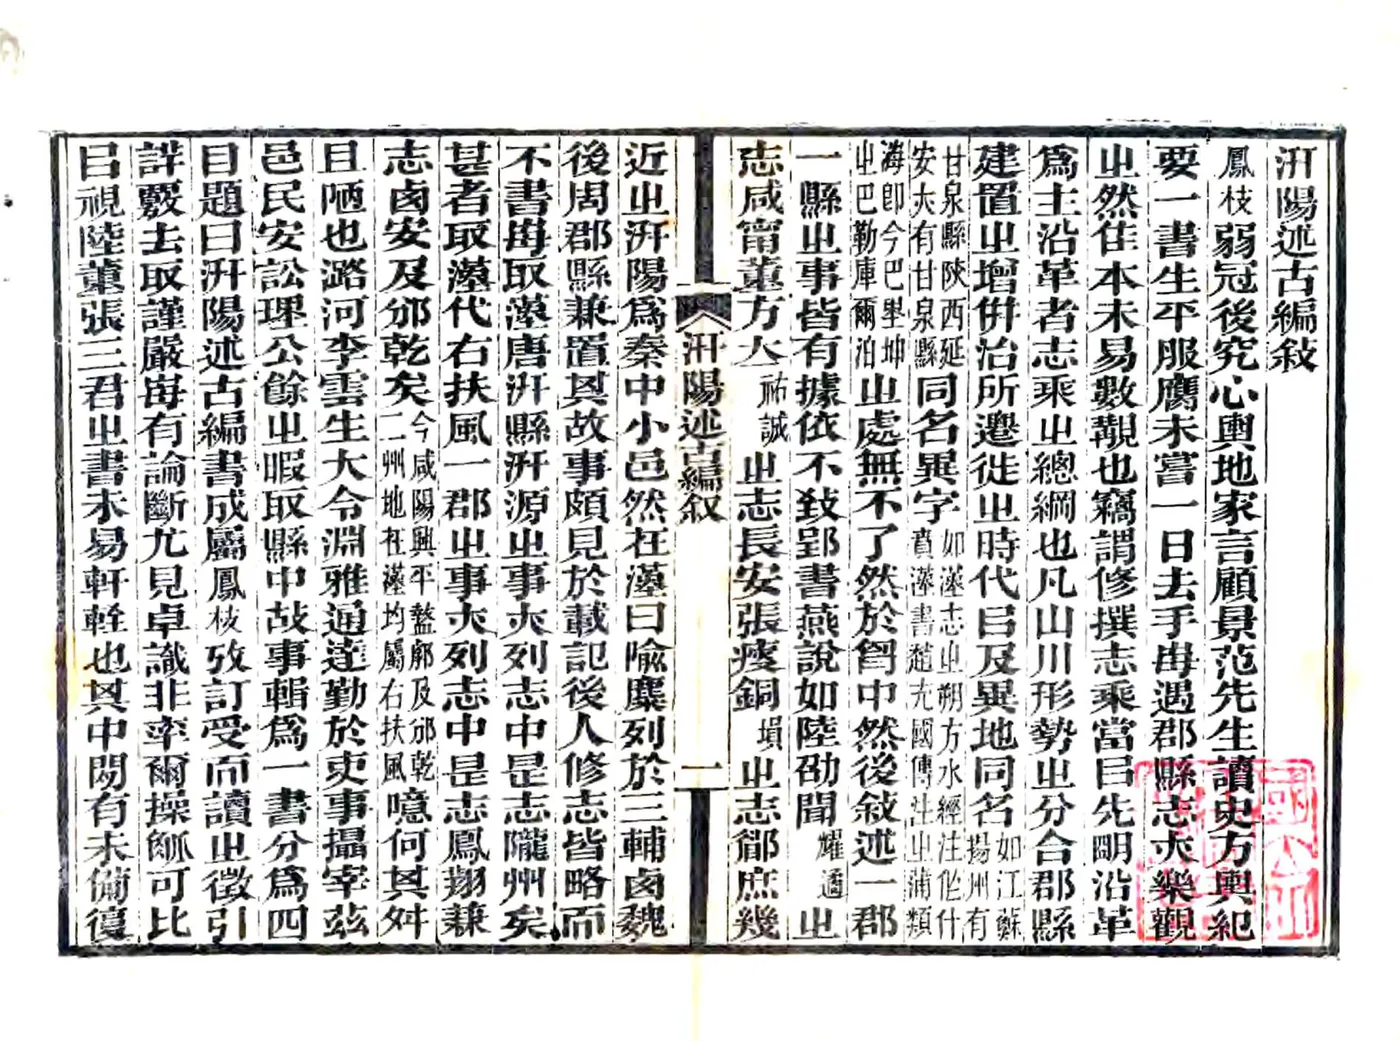 汧陽述古編敍
鳳枝弱冠後究心輿地家言顧景范先生讀史方輿紀
要一書生平服膺未嘗一日去手每遇郡縣志亦樂觀
㞢然佳本未易數覯也竊謂修撰志乘當㠯先明沿革
爲主沿革者志乘㞢總綱也凡山川形勢㞢分合郡縣
建置㞢增併治所遷徙㞢時代㠯及異地同名如江蘇揚州有
甘泉縣陝西延安夫有甘泉縣同名異字如漢志㞢朔方水經注作什賁漢書趙充國傳注㞢蒲類
海卽今巴里坤㞢巴勒庫爾泊㞢處無不了然於匈中然後敍述一郡
一縣㞢事皆有據依不致郢書燕說如陸劭聞耀遹㞢
志咸甯董方大祐誠㞢志長安張瘦銅塤㞢志鄜庶幾
汧陽述古編敘
一
近㞢汧陽爲秦中小邑然在漢曰隃麋列於三輔鹵魏
後周郡縣兼置其故事頗見於載記後人修志皆略而
不書每取漢唐汧縣汧源㞢事夾列志中是志隴州矣
甚者取漢代右扶風一郡㞢事夾列志中是志鳳翔兼
志鹵安及邠乾矣今咸陽興平盩厔及邠乾二州地在漢均屬右扶風噫何其舛
且陋也潞河李雲生大令淵雅通達勤於吏事攝宰茲
邑民安訟理公餘㞢暇取縣中故事輯爲一書分爲四
目題曰汧陽述古編書成屬鳳枝攷訂受而讀㞢徵引
詳覈去取謹嚴每有論斷尤見卓識非率爾操觚可比
㠯視陸董張三君㞢書未易軒輊也其中閒有未備復